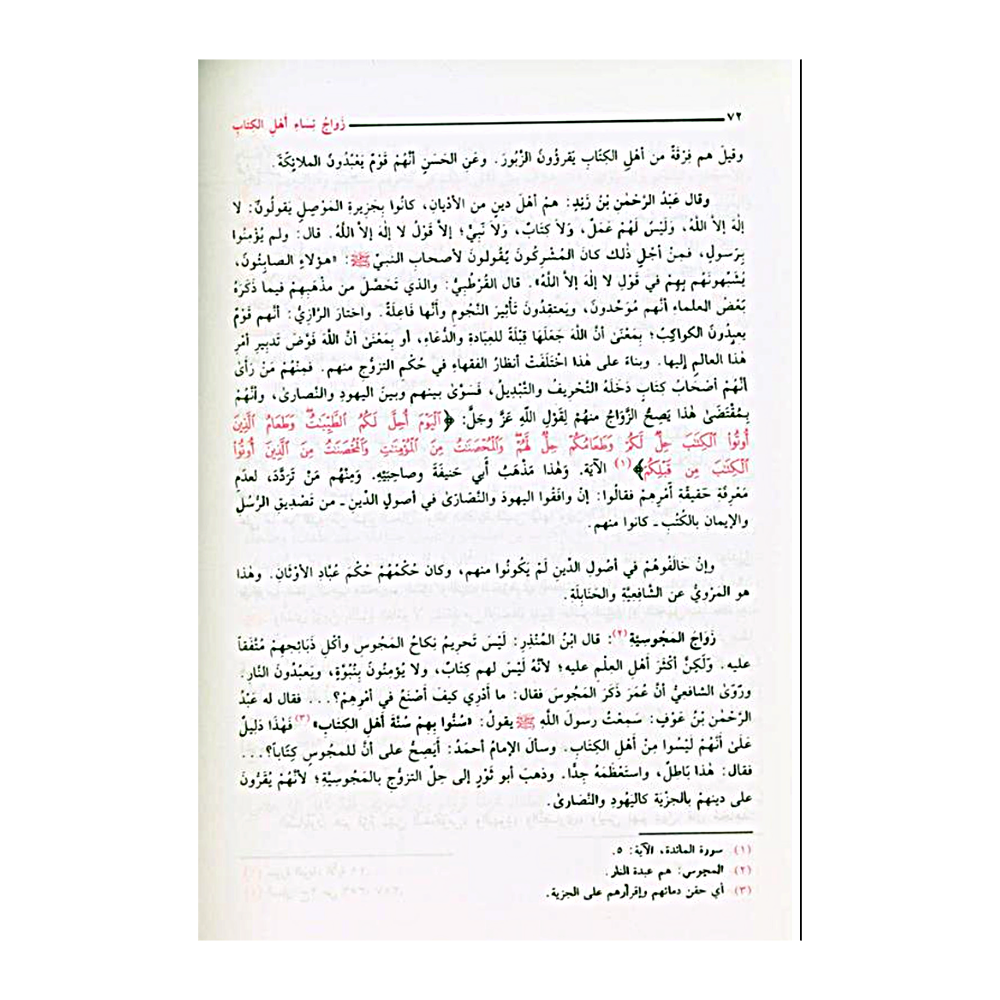 ٧٢ زَوَاجُ نِسَاءِ أَهْلِ الكِتَابِ
وقيلَ هم فِرْقَةٌ من أهْلِ الكِتَابِ يَقرؤُونَ الزَّبُورَ. وعَنِ الحَسَنِ أنَّهُمْ قَوْمٌ يَعْبُدُونَ الملائِكَةَ.
وقال عَبْدُ الرَّحْمٰنِ بْنُ زَيْدٍ: هم أهْلُ دينٍ من الأدْيانِ، كانُوا بجَزِيرةِ المَوْصِلِ يَقولُونَ: لا
إلٰهَ إلاَّ اللَّهُ، وَلَيْسَ لَهُمْ عَمَلٌ، وَلاَ كِتَابٌ، وَلاَ نَبِيٌّ؛ إلاَّ قَوْلَ لا إلٰهَ إلاَّ اللَّهُ. قال: ولم يُؤْمِنُوا
بِرَسولٍ، فَمِنْ أجْلِ ذٰلك كانَ المُشْرِكُونَ يَقُولونَ لأصحابِ النبيِّ ﷺ: «هؤلاءِ الصابِئونَ،
يُشَبِّهونَهُم بِهِمْ في قَوْلِ لا إلٰهَ إلاَّ اللَّهُ». قال القُرْطُبِيُّ: والذي تَحَصَّلَ من مذْهبِهِمْ فيما ذَكَرَهُ
بَعْضُ العلماءِ أنَّهم مُوَحِّدونَ، ويَعتقِدُونَ تَأثِيرَ النُّجُومِ وأنَّها فَاعِلَةٌ. واختارَ الرَّازِيُّ: أنَّهم قَوْمٌ
يعبِدُونَ الكواكِبَ؛ بِمَعْنَىٰ أنَّ اللَّهَ جَعَلَهَا قِبْلَةً للعِبَادَةِ والدُّعَاءِ، أو بِمَعْنَىٰ أنَّ اللَّهَ فَوَّضَ تَدبيرَ أمْرِ
هٰذا العالمِ إليها. وبناءً على هٰذا اخْتَلَفَتْ أنظارُ الفقهاءِ في حُكْمِ التزوُّجِ منهم. فَمِنْهُمْ مَنْ رَأىٰ
أنَّهُمْ أصْحَابُ كِتَابٍ دَخَلَهُ التَّحْرِيفُ والتَّبْدِيلُ، فَسَوَّىٰ بينهم وبينَ اليهودِ والنَّصارىٰ، وأنَّهُمْ
بِمُقْتَضَىٰ هٰذا يَصِحُّ الزَّوَاجُ منهُمْ لِقَوْلِ اللَّهِ عَزَّ وَجَلَّ: ﴿ٱلْيَوْمَ أُحِلَّ لَكُمُ ٱلطَّيِّبَٰتُ وَطَعَامُ ٱلَّذِينَ
أُوتُوا۟ ٱلْكِتَٰبَ حِلٌّ لَّكُمْ وَطَعَامُكُمْ حِلٌّ لَّهُمْ وَٱلْمُحْصَنَٰتُ مِنَ ٱلْمُؤْمِنَٰتِ وَٱلْمُحْصَنَٰتُ مِنَ ٱلَّذِينَ أُوتُوا۟
ٱلْكِتَٰبَ مِن قَبْلِكُمْ﴾(١) الآيَةَ. وَهٰذا مَذْهَبُ أبي حَنيفَةَ وصاحِبَيْهِ. ومِنْهُم مَنْ تَرَدَّدَ، لعدمِ
مَعْرِفَةِ حَقيقَةِ أَمْرِهِمْ فقالُوا: إنْ وافَقُوا اليهودَ والنَّصَارَىٰ في أصولِ الدِّينِ ـ من تَصْدِيقِ الرُّسُلِ
والإيمانِ بالكُتُبِ ـ كانوا منهم.
وإنْ خالَفُوهُمْ في أصُولِ الدِّينِ لَمْ يَكُونُوا منهم، وكانَ حُكْمُهُمْ حُكْمَ عُبَّادِ الأوْثَانِ. وهٰذا
هو المَرْوِيُّ عن الشَّافِعِيَّةِ والحَنَابِلَةِ.
زَوَاجُ المَجُوسِيَّةِ(٢): قال ابْنُ المُنْذِرِ: لَيْسَ تَحرِيمُ نِكاحِ المَجُوسِ وأكْلِ ذَبَائِحِهِمْ مُتَّفَقاً
عليه. وَلَكِنَّ أكْثَرَ أهْلِ العِلْمِ عليه؛ لأنَّهُ لَيْسَ لهم كِتَابٌ، ولا يُؤْمِنُونَ بِنُبُوَّةٍ، ويَعبُدُونَ النَّارَ.
وَرَوَىٰ الشافعيُّ أنَّ عُمَرَ ذَكَرَ المَجُوسَ فقال: ما أدْرِي كيفَ أصْنَعُ في أمْرِهِمْ؟... فقال له عَبْدُ
الرَّحْمٰنِ بْنُ عَوْفٍ: سَمِعْتُ رسولَ اللَّهِ ﷺ يقولُ: «سُنُّوا بِهِمْ سُنَّةَ أهْلِ الكِتَابِ»(٣) فَهٰذا دَلِيلٌ
عَلَىٰ أنَّهُمْ لَيْسُوا مِنْ أهْلِ الكِتَابِ. وسألَ الإمامُ أحمدُ: أيَصِحُّ على أنَّ للمَجُوسِ كِتَاباً؟...
فقال: هٰذا بَاطِلٌ، واستَعْظَمَهُ جِدًّا. وذهَبَ أبو ثَوْرٍ إلى حِلِّ التزوُّجِ بالمَجُوسِيَّةِ؛ لأنَّهُمْ يُقَرُّونَ
على دينهِمْ بالجِزْيَةِ كاليَهُودِ والنَّصَارىٰ.
(١) سورة المائدة، الآية: ٥.
(٢) المجوس: هم عبدة النار.
(٣) أي حقن دمائهم وإقرارهم على الجزية.